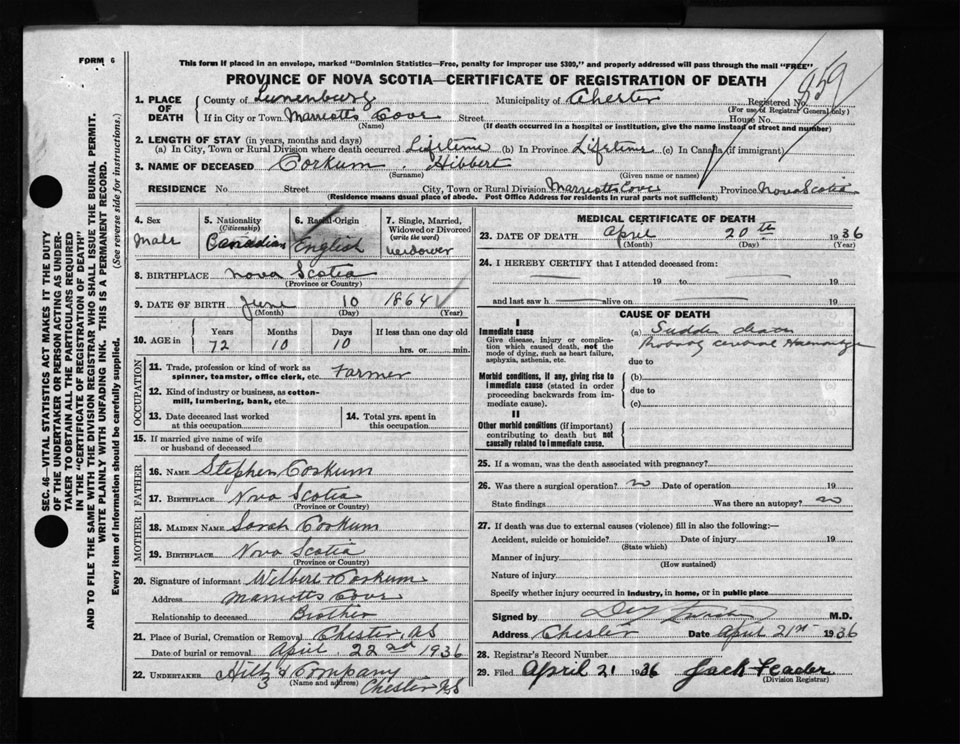 FORM 6
This form if placed in an envelope, marked "Dominion Statistics—Free, penalty for improper use $300," and properly addressed will pass through the mail "FREE"
PROVINCE OF NOVA SCOTIA—CERTIFICATE OF REGISTRATION OF DEATH
859
1. PLACE OF DEATH
County of Lunenburg Municipality of Chester Registered No.
(For use of Registrar General only)
If in City or Town Marriotts Cove Street House No.
(Name) (If death occurred in a hospital or institution, give the name instead of street and number)
2. LENGTH OF STAY (in years, months and days)
(a) In City, Town or Rural Division where death occurred Lifetime (b) In Province Lifetime (c) In Canada (if immigrant)
3. NAME OF DECEASED Corkum, Hibbert
(Surname) (Given name or names)
RESIDENCE No Street City, Town or Rural Division Marriotts Cove Province Nova Scotia
(Residence means usual place of abode. Post Office Address for residents in rural parts not sufficient)
4. Sex
Male
5. Nationality
(Citizenship)
Canadian
6. Racial Origin
English
7. Single, Married, Widowed or Divorced
(write the word)
Widower
8. BIRTHPLACE Nova Scotia
(Province or Country)
9. DATE OF BIRTH June 10 1864
(Month) (Day) (Year)
10. AGE in
Years Months Days If less than one day old
72 10 10 hrs. or min.
OCCUPATION
11. Trade, profession or kind of work as spinner, teamster, office clerk, etc. Farmer
12. Kind of industry or business, as cotton-mill, lumbering, bank, etc.
13. Date deceased last worked at this occupation
14. Total yrs. spent in this occupation
15. If married give name of wife or husband of deceased
FATHER
16. NAME Stephen Corkum
17. BIRTHPLACE Nova Scotia
(Province or Country)
MOTHER
18. MAIDEN NAME Sarah Corkum
19. BIRTHPLACE Nova Scotia
(Province or Country)
20. Signature of informant Wilbert Corkum
Address Marriotts Cove
Relationship to deceased Brother
21. Place of Burial, Cremation or Removal Chester, NS
Date of burial or removal April 22nd 1936
22. UNDERTAKER Hiltz & Company
(Name and address) Chester NS
3
MEDICAL CERTIFICATE OF DEATH
23. DATE OF DEATH April 20th 1936
(Month) (Day) (Year)
24. I HEREBY CERTIFY that I attended deceased from:
19 to 19
and last saw h alive on 19
CAUSE OF DEATH
I
Immediate cause
Give disease, injury or complication which caused death, not the mode of dying, such as heart failure, asphyxia, asthenia, etc.
(a) Sudden death
Probably cerebral Haemorrhage
due to
Morbid conditions, if any, giving rise to immediate cause (stated in order proceeding backwards from immediate cause).
(b)
due to
(c)
II
Other morbid conditions (if important) contributing to death but not causally related to immediate cause.
25. If a woman, was the death associated with pregnancy?
26. Was there a surgical operation? no Date of operation 19
State findings Was there an autopsy? no
27. If death was due to external causes (violence) fill in also the following:—
Accident, suicide or homicide? Date of injury 19
(State which)
Manner of injury
(How sustained)
Nature of injury
Specify whether injury occurred in industry, in home, or in public place
Signed by M.D.
Address Chester Date April 21st 1936
28. Registrar's Record Number
29. Filed April 21 1936 Jack Leader
(Division Registrar)
SEC. 46—VITAL STATISTICS ACT MAKES IT THE DUTY
OF THE UNDERTAKER OR PERSON ACTING AS UNDER-
TAKER TO OBTAIN ALL THE PARTICULARS REQUIRED
IN THE "CERTIFICATE OF REGISTRATION OF DEATH"
AND TO FILE THE SAME WITH THE DIVISION REGISTRAR WHO SHALL ISSUE THE BURIAL PERMIT.
WRITE PLAINLY WITH UNFADING INK. THIS IS A PERMANENT RECORD.
Every item of information should be carefully supplied. (See reverse side for instructions.)